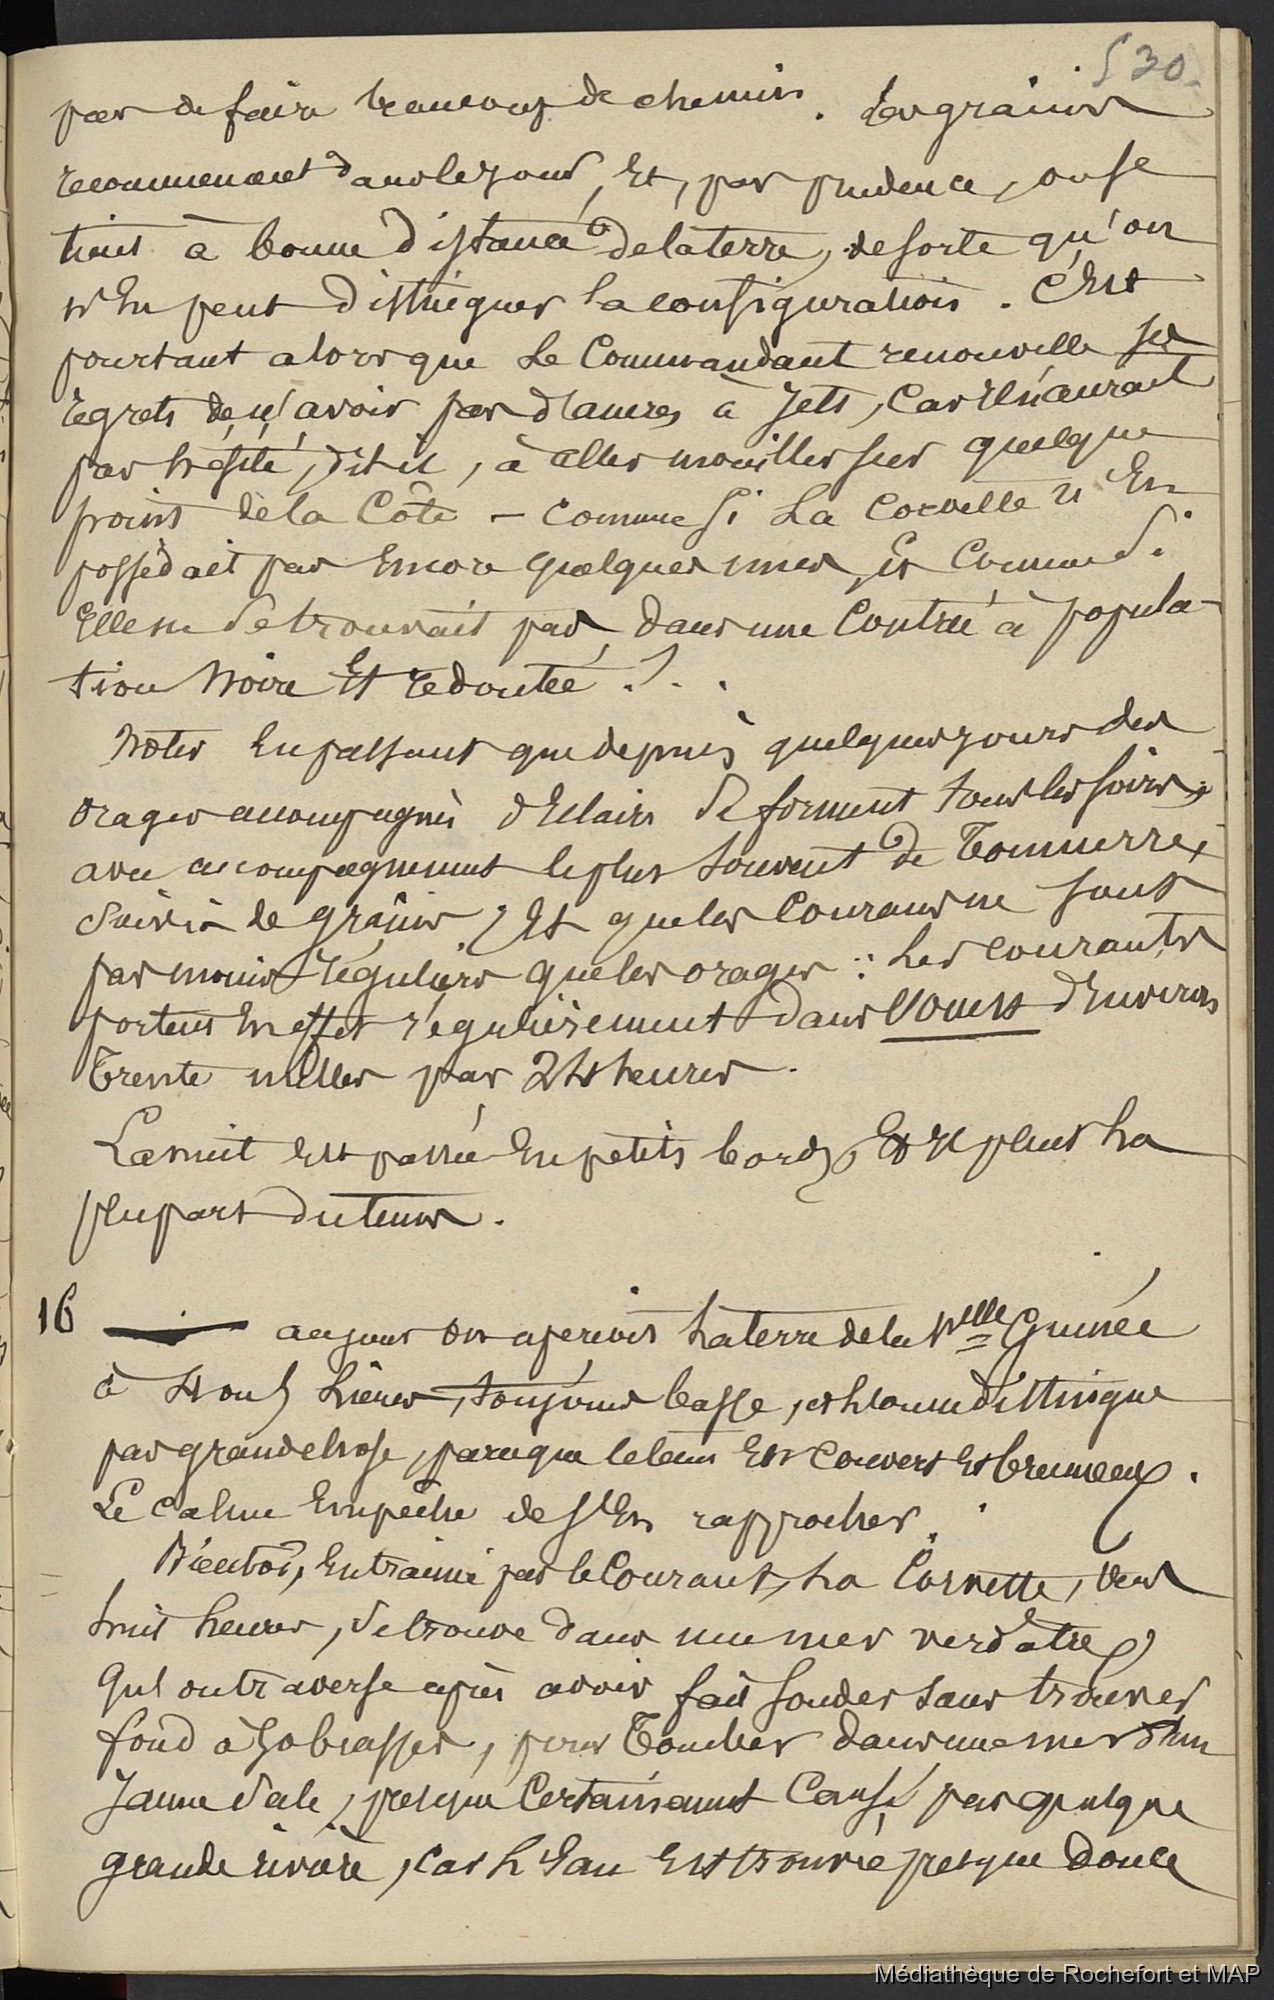 530
pas de faire beaucoup de chemin. Les grains
recommencent dans le jour, Et, par prudence, on se
tient à bonne distance de la terre, de sorte qu'on
n'En peut distinguer la configuration. C'Est
pourtant alors que Le Commandant renouvelle ses
regrets de n'avoir pas d'ancres à Jets, Car Il n'aurait
pas hésité, dit-il, à aller mouiller sur quelque
point de la Côte – comme si La Corvette n'En
possédait pas Encore quelques unes, Et Comme Si
Elle ne se trouvait pas, dans une Contrée à popula-
tion Noire Et redoutée...
Noter En passant que depuis quelques jours des
orages accompagnés d'Eclairs se forment tous les soirs,
avec accompagnement le plus souvent de Tonnerre,
Suivis de grains; Et que les Courans ne sont
pas moins réguliers que les orages: Les courants
portent En effet régulièrement dans l'Ouest d'Environ
Trente milles par 24 heures.
La nuit Est passée En petits bords, Et Il pleut La
plupart du tems.
16 au jour on aperçoit La terre de la Nelle Guinée
à 4 ou 5 Lieues, toujours basse, et L'on ne distingue
pas grand chose, parceque le tems Est Couvert Et brumeux.
Le calme Empêche de s'En rapprocher.
Bientôt, Entrainée par le Courant, La Corvette, vers
huit heures, se trouve dans une mer verdâtre,
Qu'on traverse après avoir fait sonder sans trouver
fond à 50 brasses, pour Tomber dans une mer d'un
Jaune Sale, presque Certainement Causé par quelque
grande rivière, car L'Eau Est trouvée presque douce
Médiathèque de Rochefort et MAP